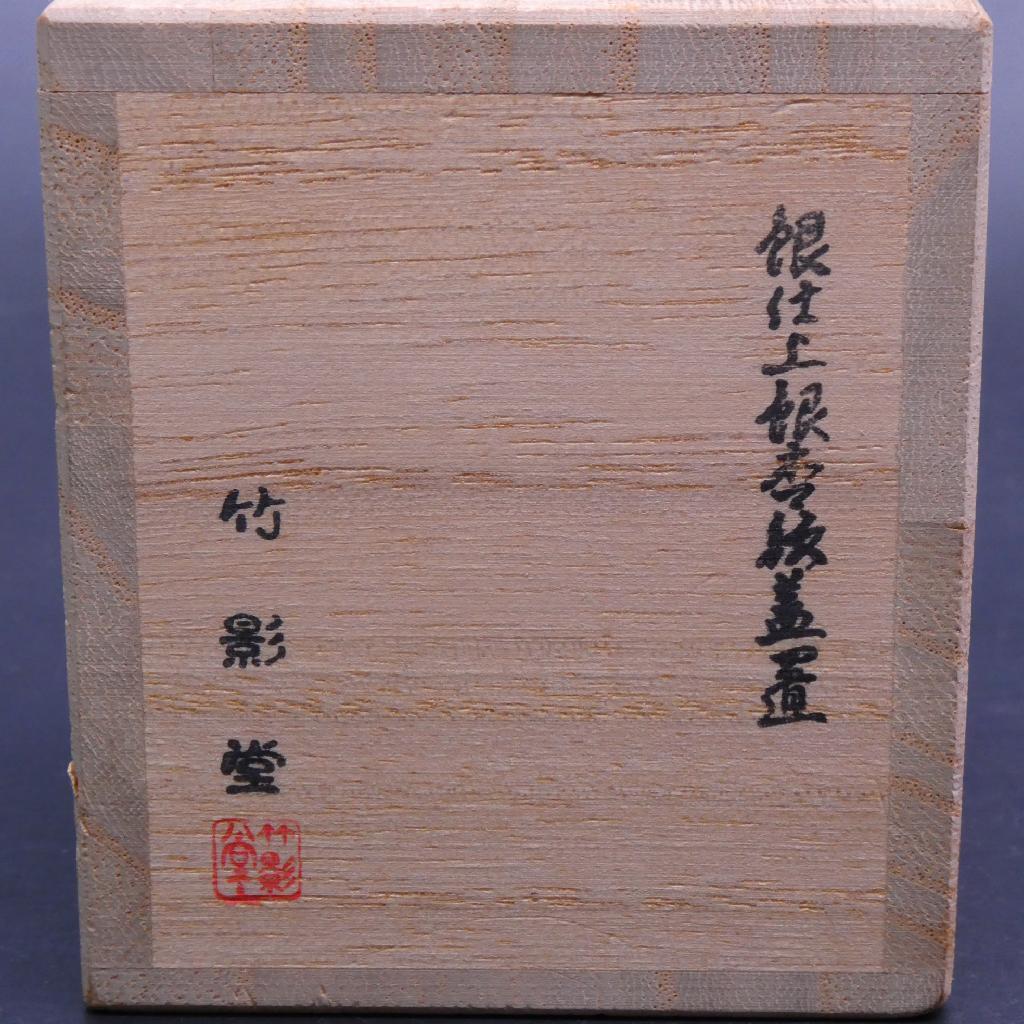 銀仕上銀杏蓋置
竹影堂
竹影堂